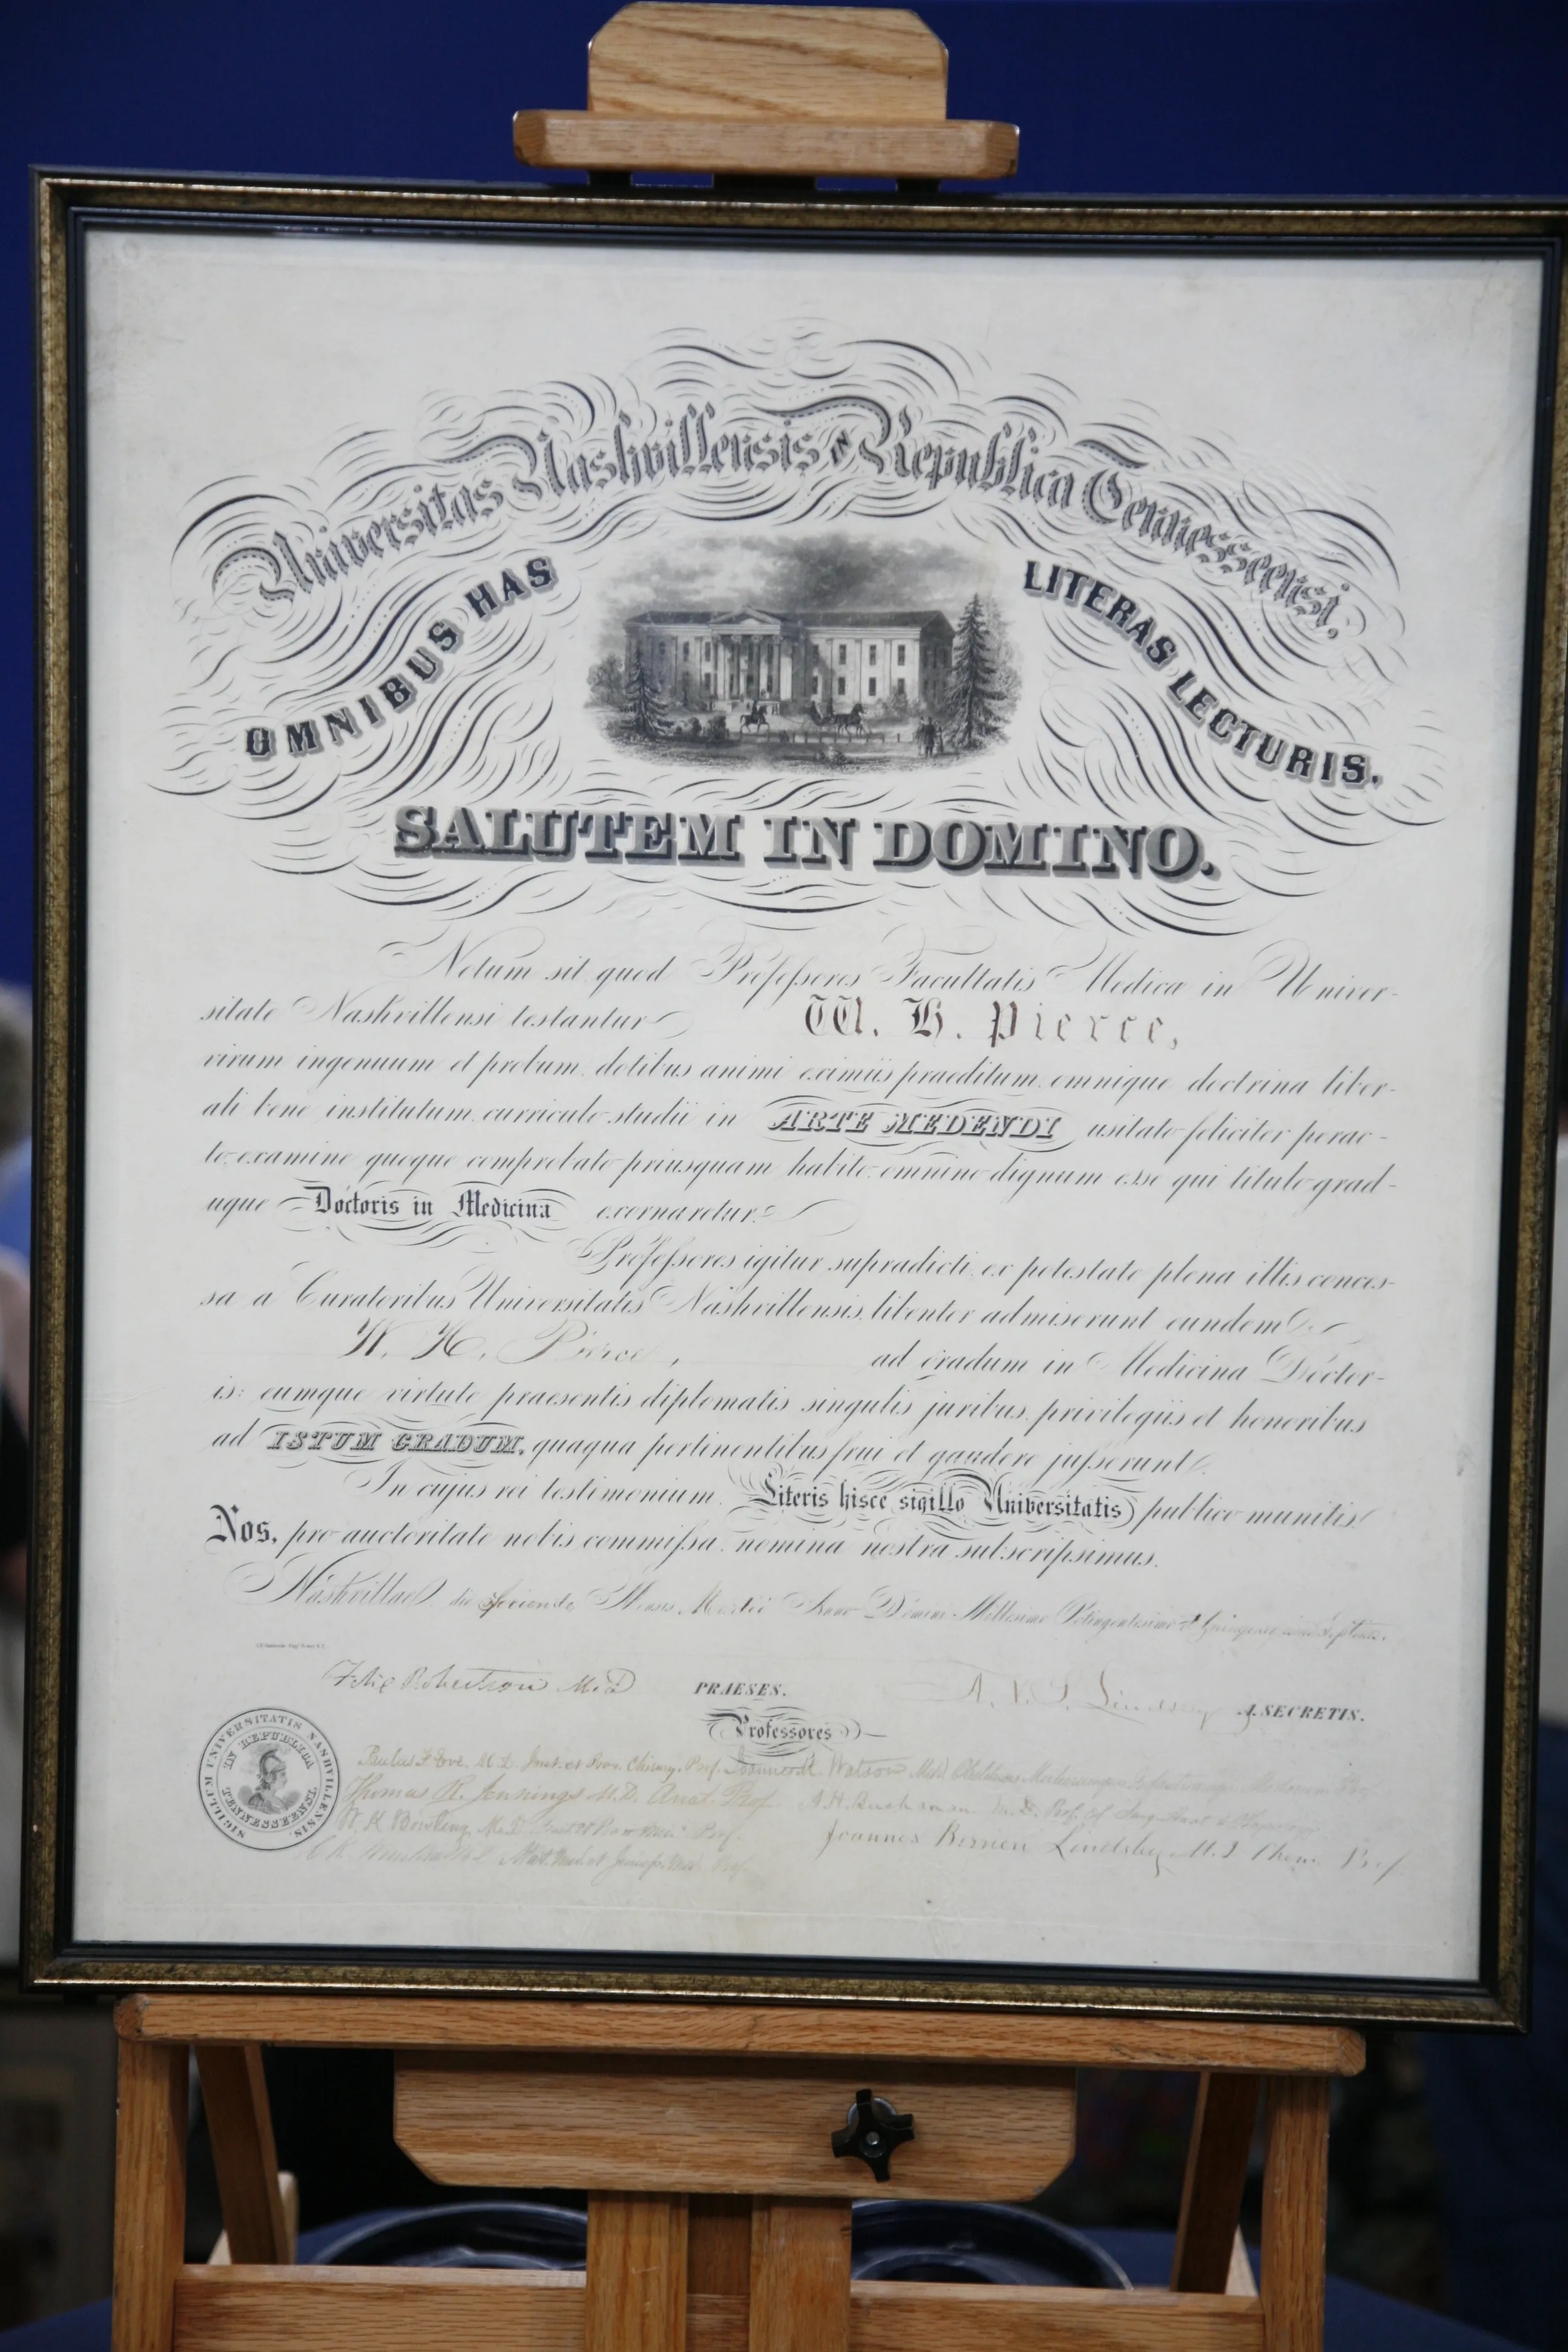 Universitas Nashvillensis in Republica Tennesseensi,
OMNIBUS HAS LITERAS LECTURIS.
SALUTEM IN DOMINO.
Notum sit quod Professores Facultatis Medicæ in Univer-
sitate Nashvillensi testantur W. H. Pierce,
virum ingenuum et probum dotibus animi eximiis praeditum omnique doctrina liber-
ali bene institutum curriculo studii in ARTE MEDENDI usitato feliciter perac-
to, examine quoque comprobato priusquam habito, omnino dignum esse qui titulo grad-
uque Doctoris in Medicina exornaretur.
Professores igitur supradicti, ex potestate plena illis conces-
sa a Curatoribus Universitatis Nashvillensis, libenter admiserunt eundem
W. H. Pierce, ad gradum in Medicina Doctor-
is: eumque virtute praesentis diplomatis singulis juribus, privilegiis et honoribus
ad ISTUM GRADUM, quaqua pertinentibus frui et gaudere jusserunt.
In cujus rei testimonium, Literis hisce sigillo Universitatis publico munitis
Nos, pro auctoritate nobis commissa, nomina nostra subscripsimus.
Nashvillae die Mensis Martii Anno Domini Millesimo Octingentesimo &
Felix Robertson M.D PRAESES. A. V. S. Lindsley A SECRETIS.
Professores
SIGILLUM UNIVERSITATIS NASHVILLENSIS.
IN REPUBLICA TENNESSEENSI
Paulus F. Eve, M.D. Inst. et Prax. Chirurg. Prof. Joannes M. Watson M.D.
Thomas R. Jennings M.D. Anat. Prof. A. H. Buchanan M.D. Prof. of Surg. Anat. &
W. K. Bowling M.D. Prof.
Joannes Berrien Lindsley M.D. Chem. Prof.
Mat. Med. et Prof.